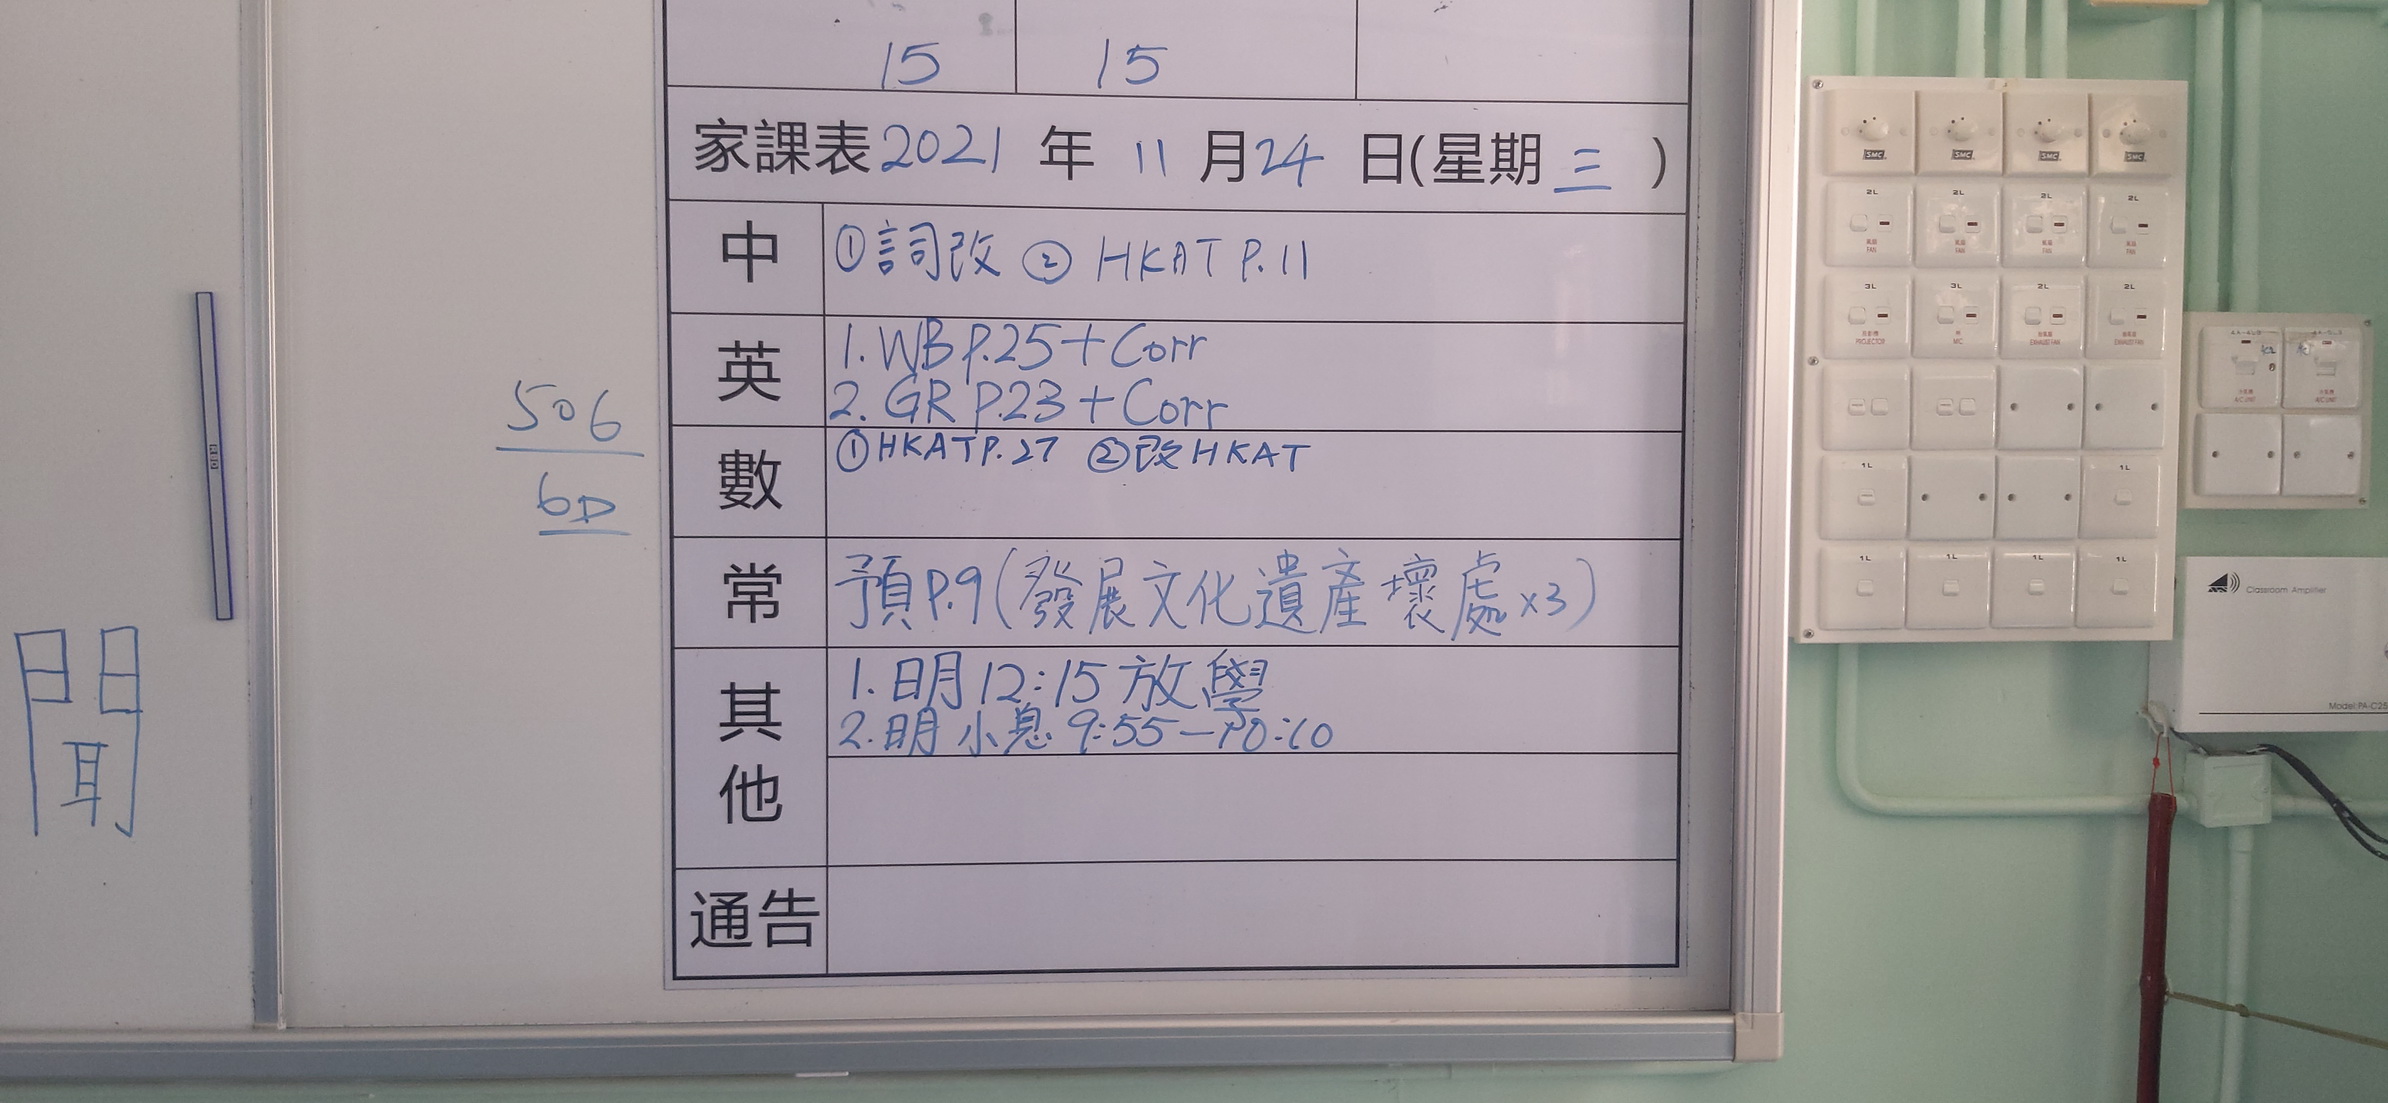 15 15
家課表2021 年 11 月24 日(星期 三 )
中 ①詞改 ② HKAT P.11
英 1. WB P.25 + Corr
2. GR P.23 + Corr
數 ①HKAT P.27 ②改HKAT
常 預P.9(發展文化遺產壞處x3)
其他 1. 明 12:15 放學
2. 明 小息 9:55-10:10
通告
506
6D
聞
SMC SMC SMC SMC
2L 2L 2L 2L
風扇 風扇 風扇 風扇
FAN FAN FAN FAN
3L 3L 2L 2L
投影機 咪 抽氣扇 抽氣扇
PROJECTOR MIC EXHAUST FAN EXHAUST FAN
1L 1L
1L 1L 1L 1L
冷氣機 冷氣機
A/C UNIT A/C UNIT
Classroom Amplifier
Model:PA-C25